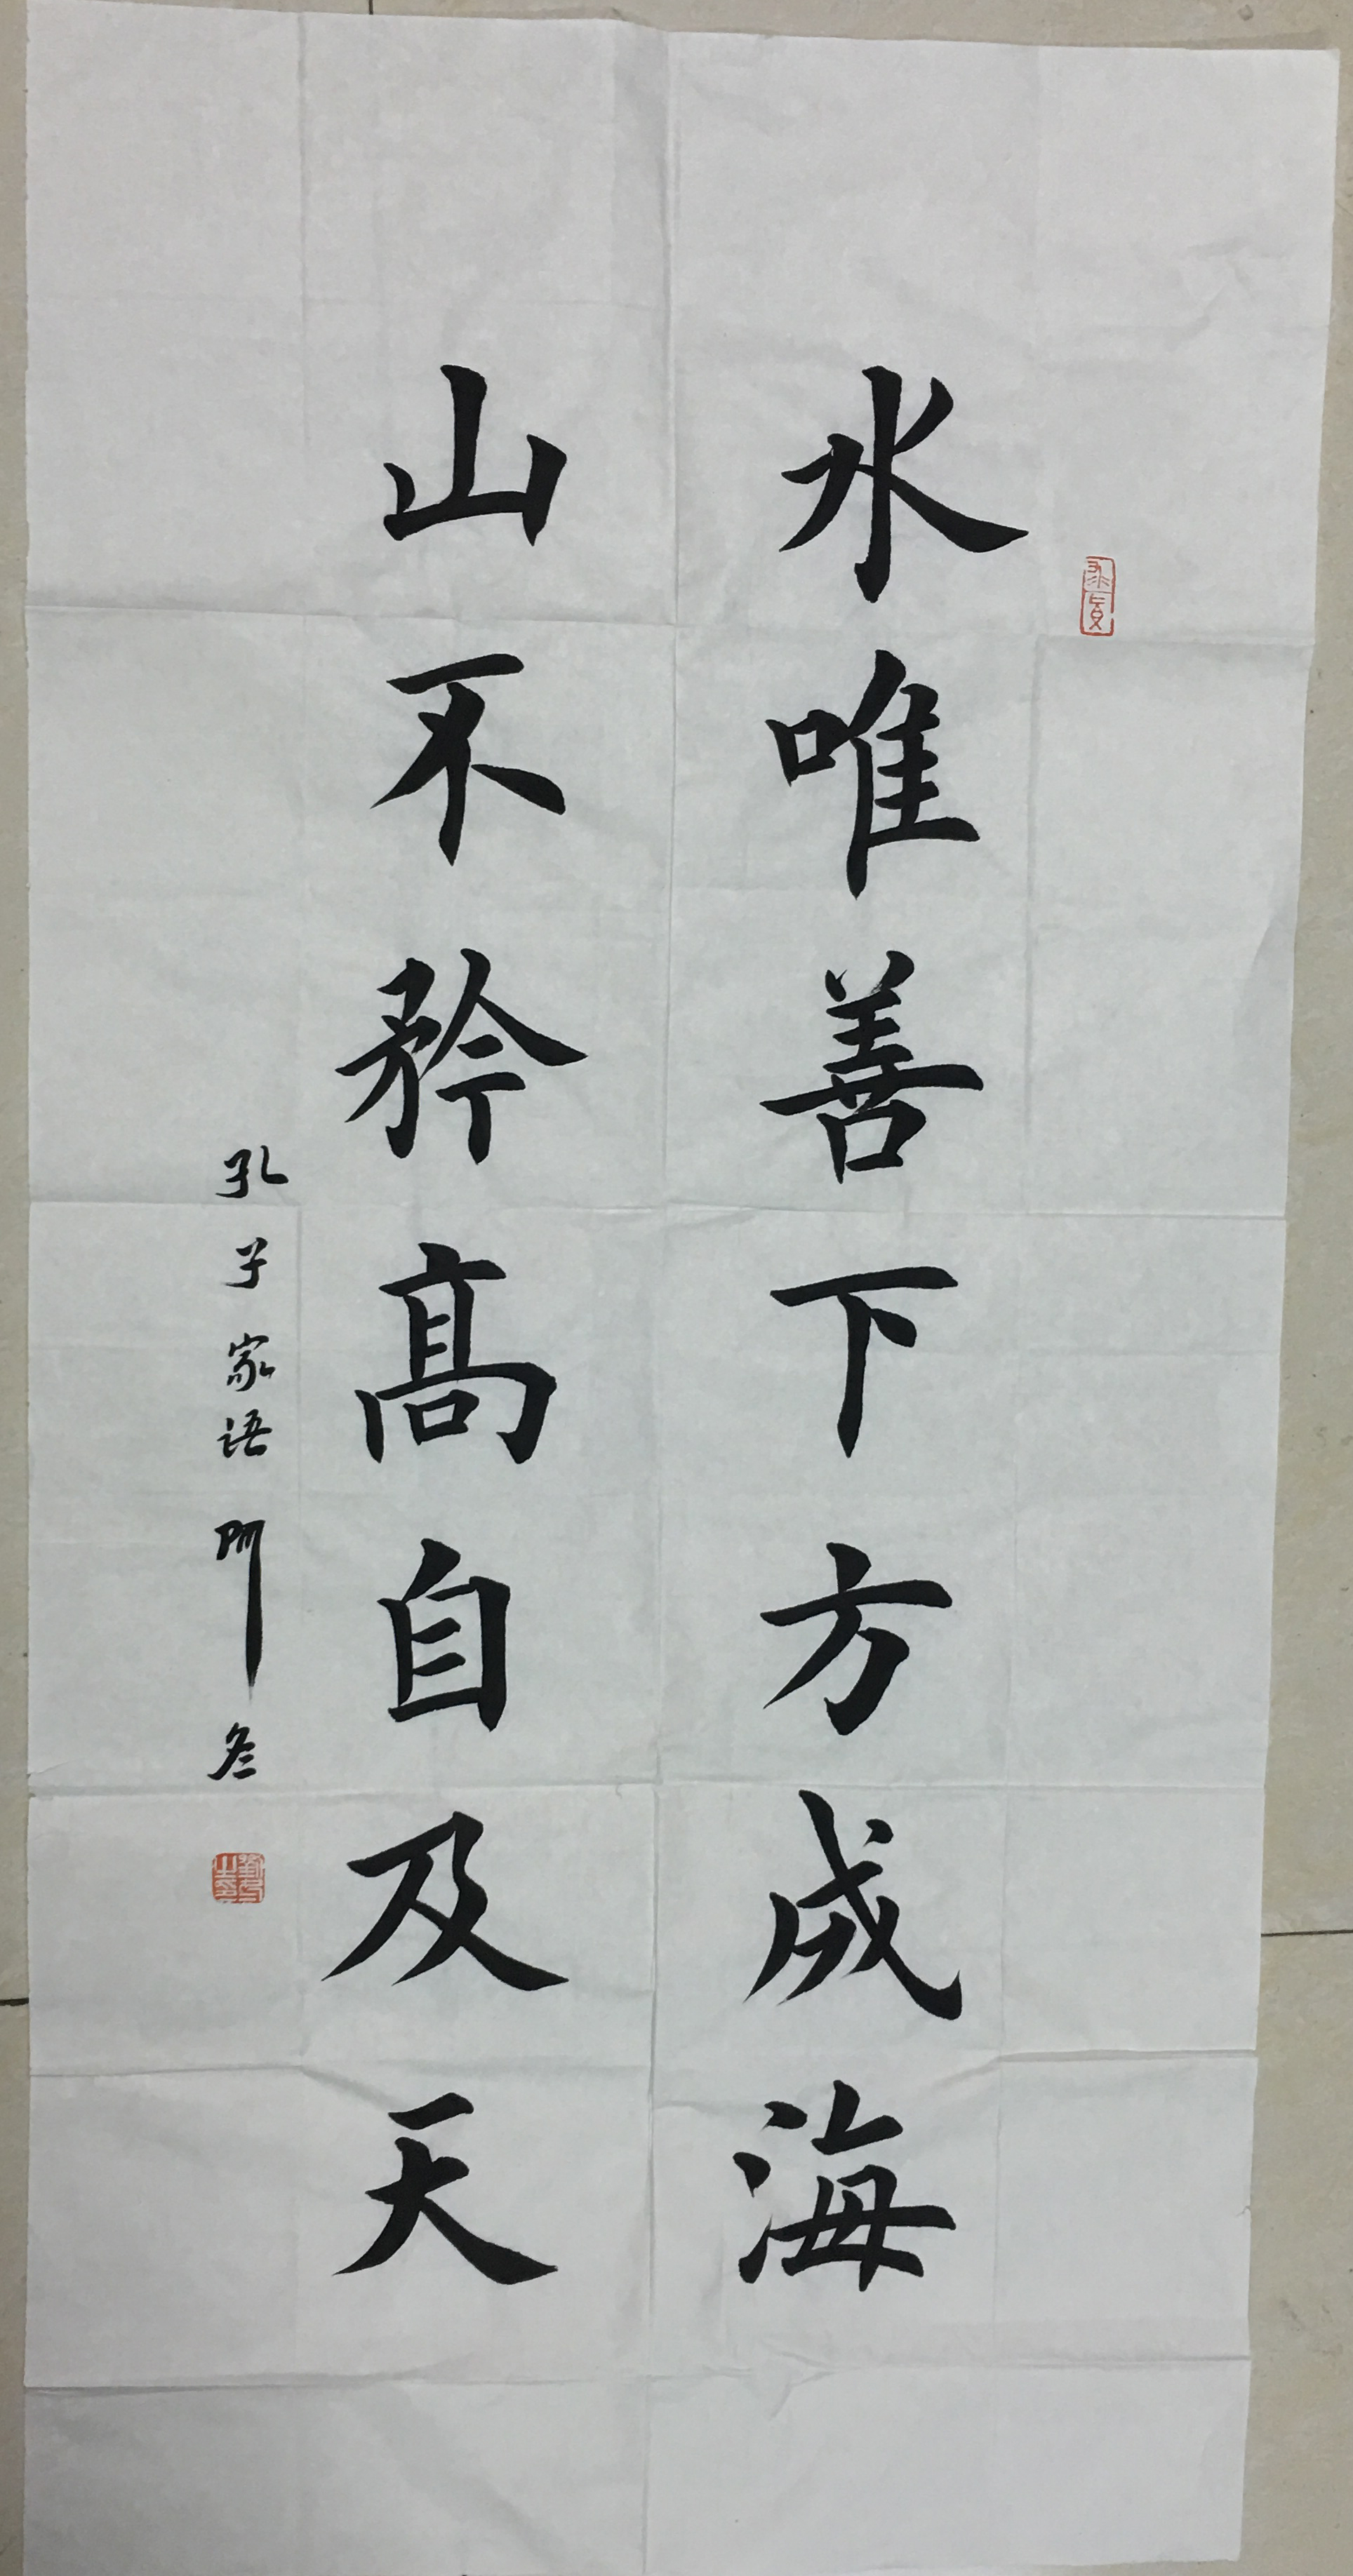 水唯善下方成海
山不矜高自及天
孔子家语